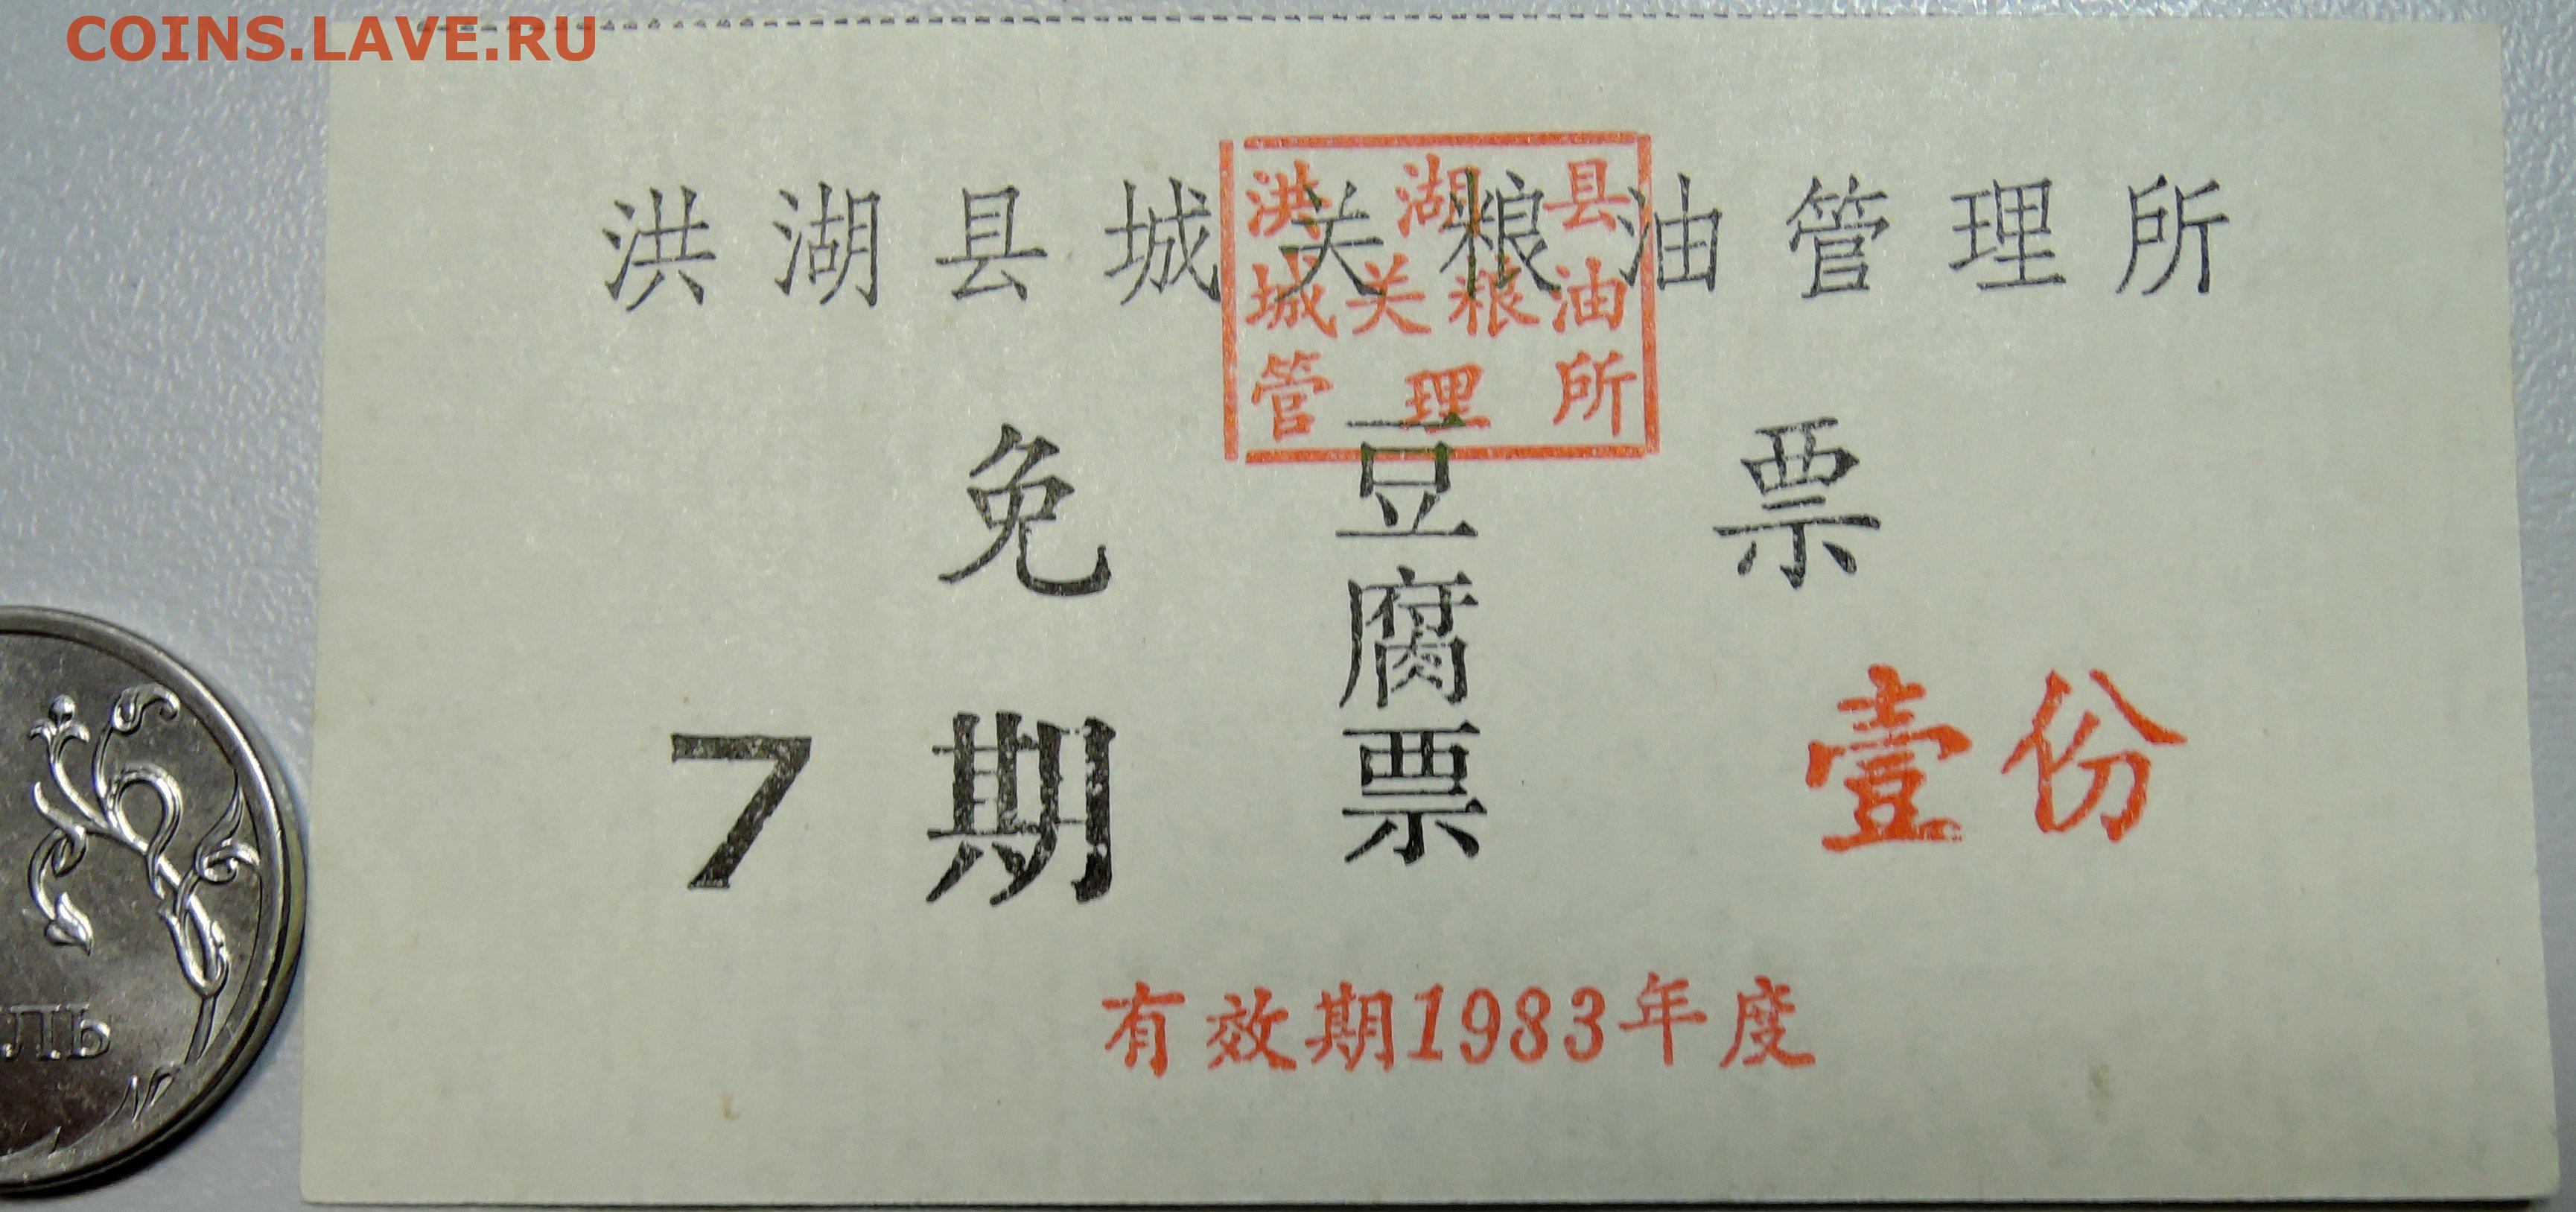 COINS.LAVE.RU
洪湖县城关粮油管理所
洪湖县
城关粮油
管理所
免 票
豆腐票
7期
壹份
有效期1983年度
ЛЬ